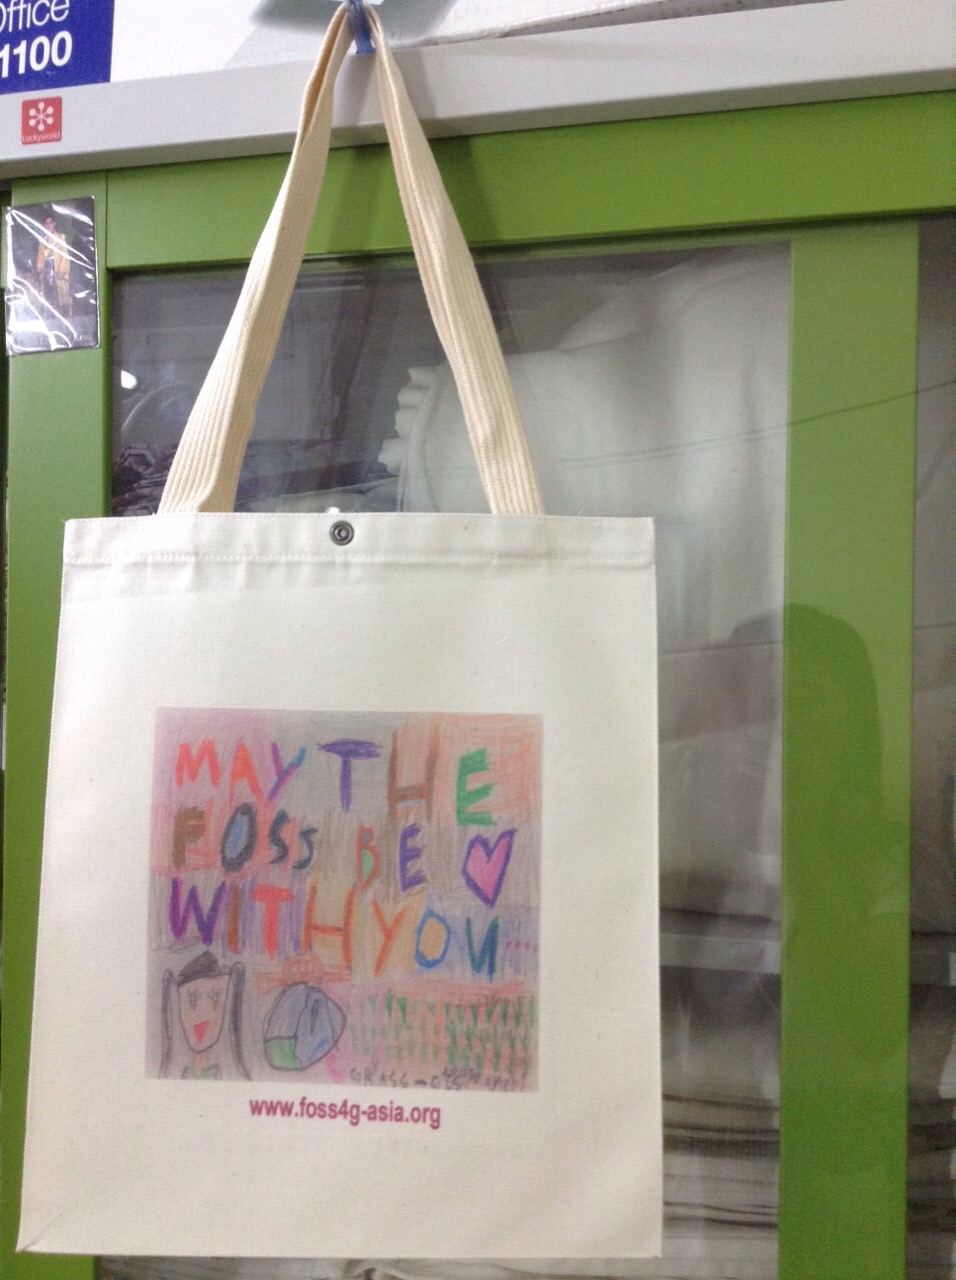 Office
1100
Luckyworld
MAY THE
FOSS BE
WITH YOU....
GRASS
www.foss4g-asia.org